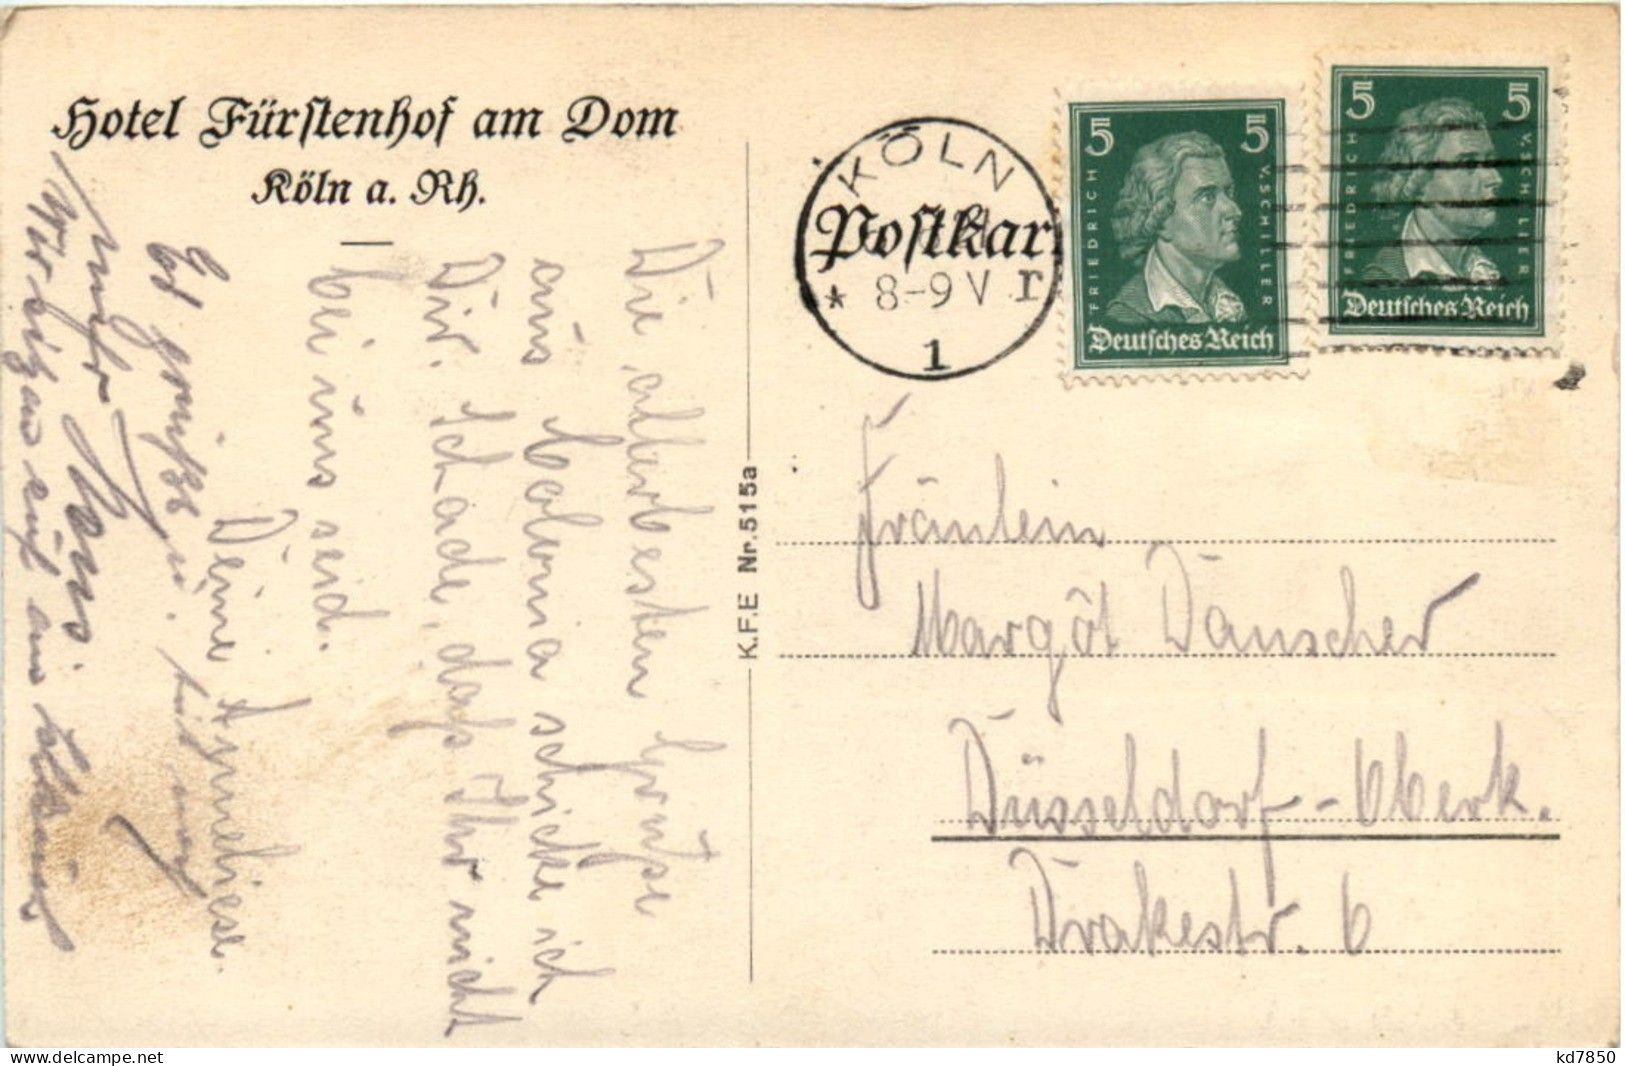 Hotel Fürstenhof am Dom
Köln a. Rh.
Die allerbesten Grüße
aus Colonia schicke ich
Dir. Schade, daß Ihr nicht
bei uns seid.
Deine Anneliese.
Es grüßt u.
Hans.
Wir
K.F.E Nr. 515a
KÖLN
Postkar
* 8-9 V r
1
5 5
FRIEDRICH V. SCHILLER
Deutsches Reich
5 5
FRIEDRICH V. SCHILLER
Deutsches Reich
Fräulein
Margot Dauscher
Düsseldorf-Oberk.
Drakestr. 6
www.delcampe.net
kd7850